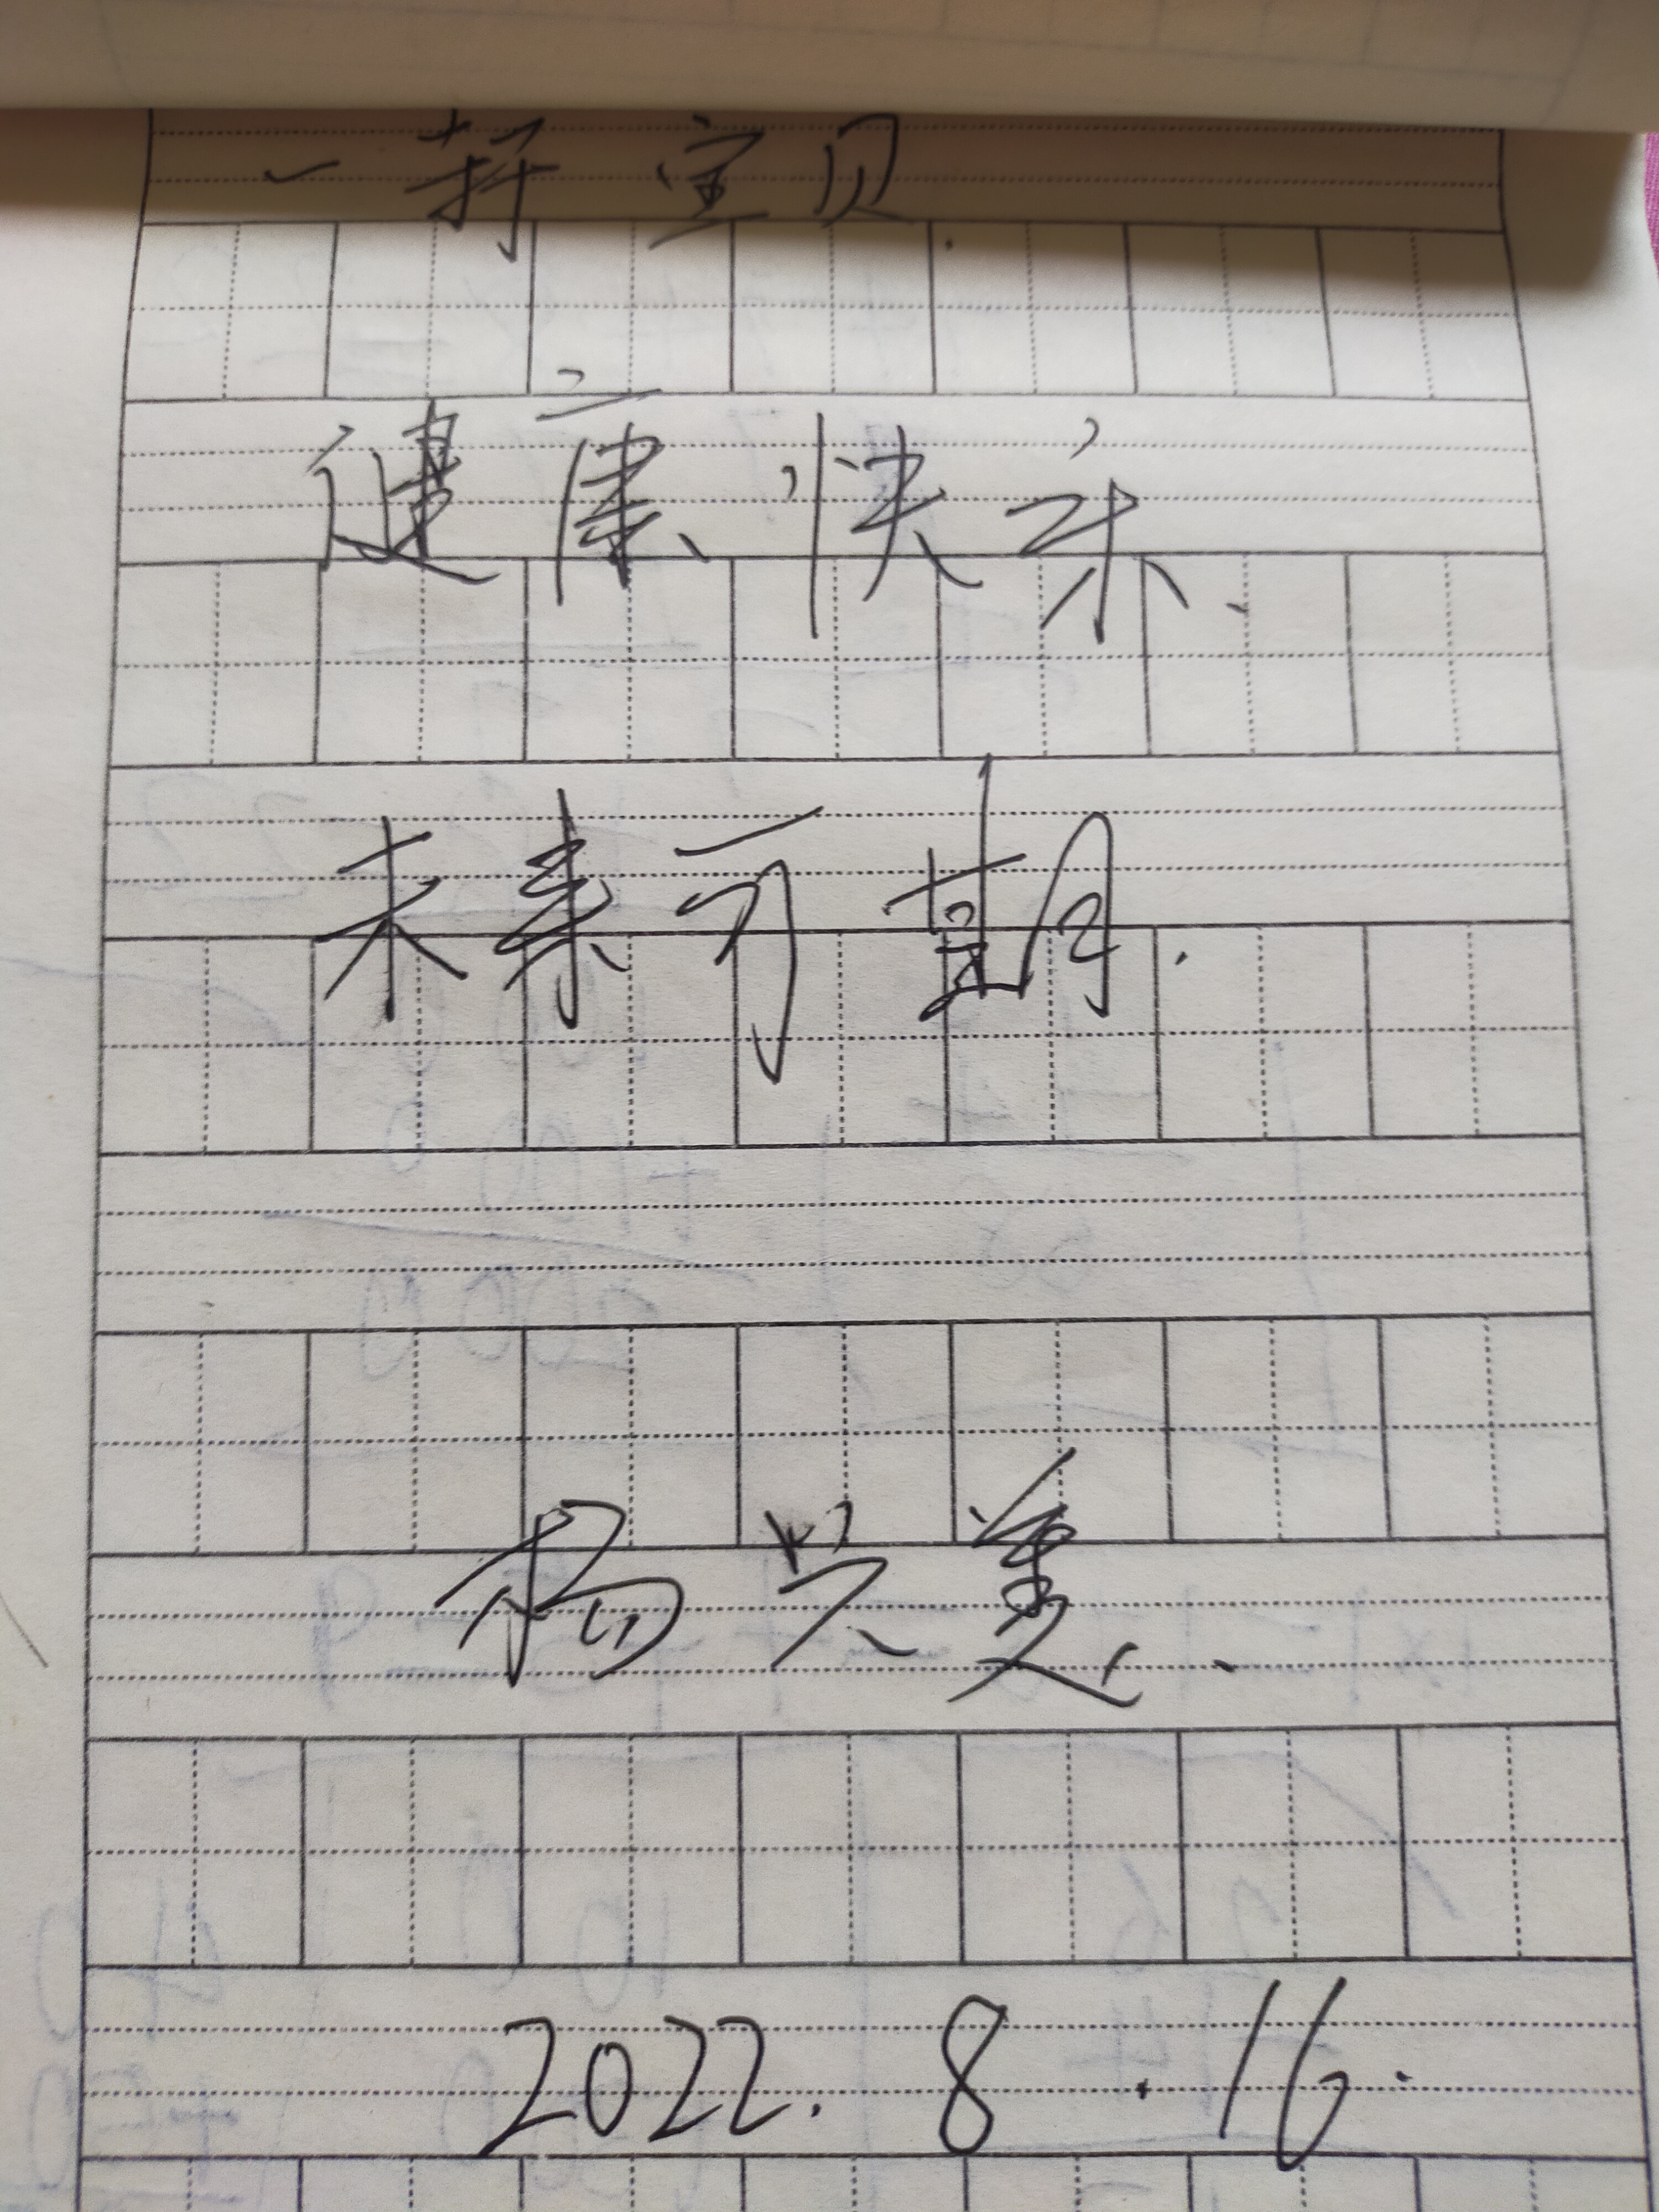 一轩宝贝.
健康快乐.
未来可期.
杨兴美.
2022.8.16.